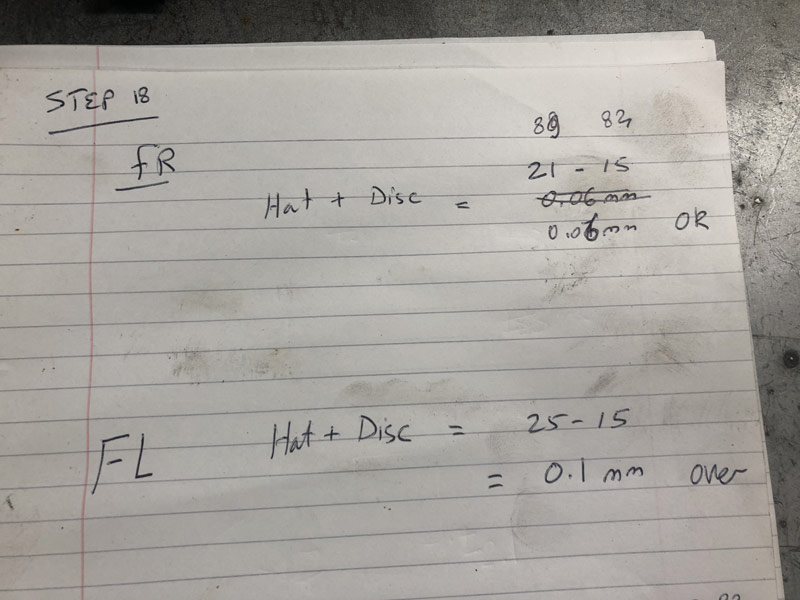 STEP 18
FR
89 82
21 - 15
Hat + Disc = 0.06mm
0.06mm OK
FL Hat + Disc = 25-15
= 0.1 mm over